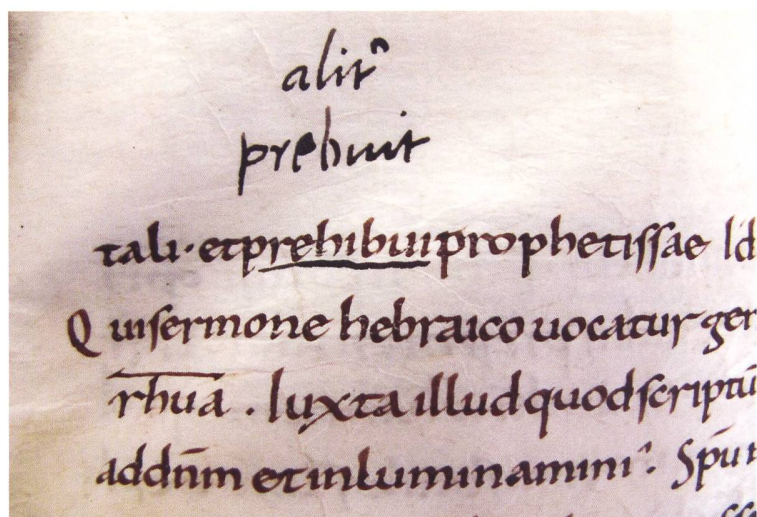 alit᷑
prebuit
tali · et prehibui prophetissae
Qui sermone hebraico uocatur ger
rhuā . Iuxta illud quod scriptū
ad dn̄m et inluminamini · Sp̄u